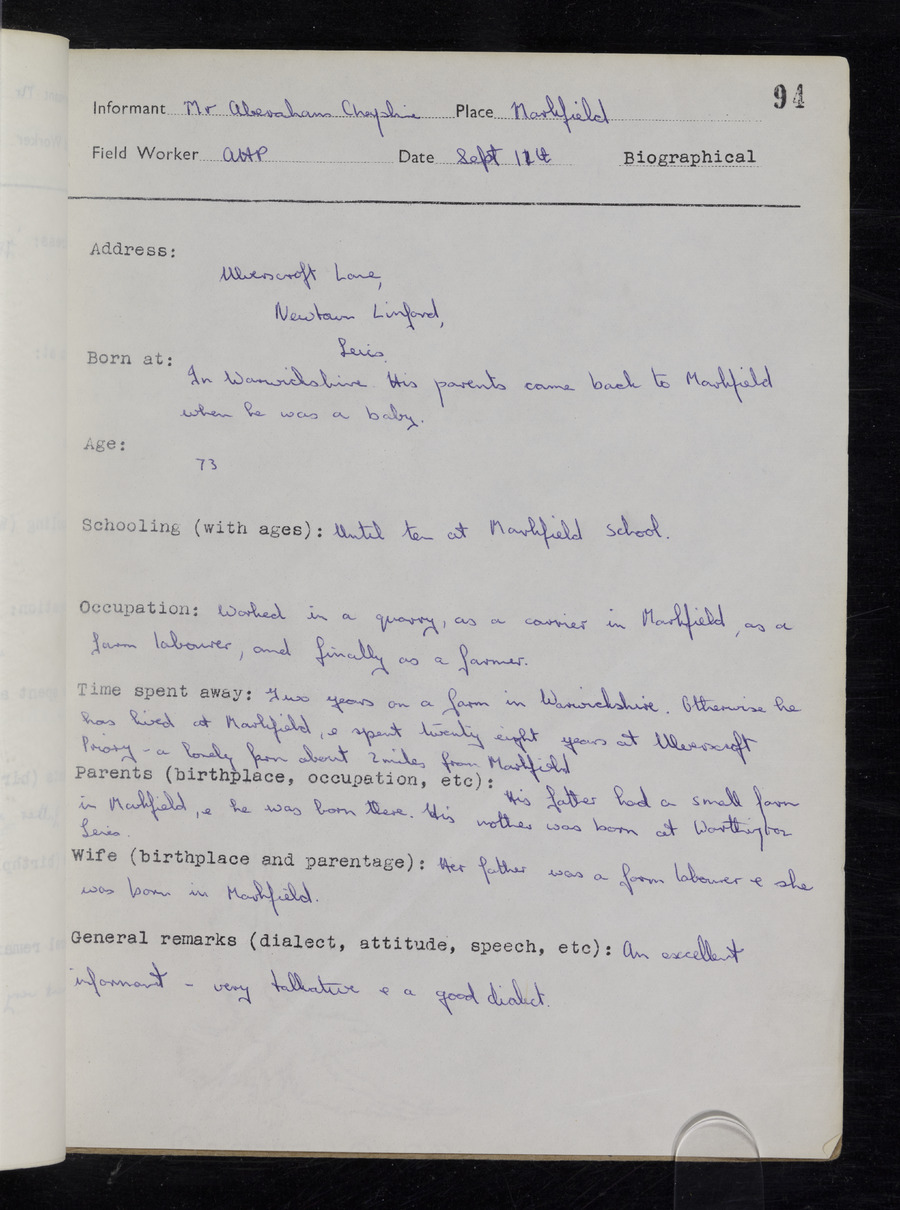 94
Informant Mr Aberaham Chaplin Place Markfield
Field Worker AHP Date Sept Biographical
Address:
Ulverscroft Lane,
Newtown Linford,
Leics.
Born at:
In Warwickshire. His parents came back to Markfield
when he was a baby.
Age:
73
Schooling (with ages): Until ten at Markfield school.
Occupation: Worked in a quarry, as a carrier in Markfield, as a
farm labourer, and finally as a farmer.
Time spent away: Two years on a farm in Warwickshire. Otherwise he
has lived at Markfield, & spent twenty eight years at Ulverscroft
Priory - a lonely farm about 2 miles from Markfield
Parents (birthplace, occupation, etc):
His father had a small farm
in Markfield, & he was born there. His mother was born at Worthington
Leics.
Wife (birthplace and parentage): Her father was a farm labourer & she
was born in Markfield.
General remarks (dialect, attitude, speech, etc): An excellent
informant - very talkative & a good dialect.